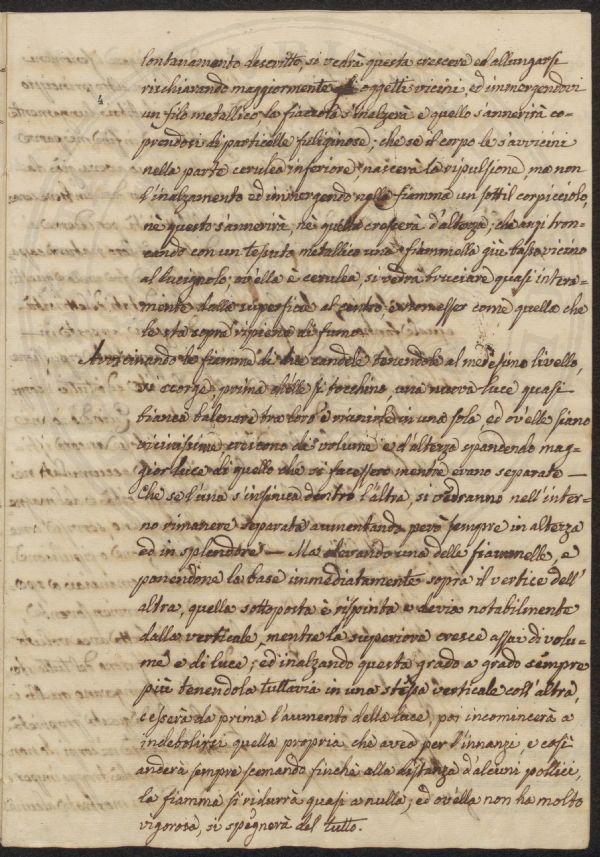 lontanamento descritto, si vedrà questa crescere ed allungarsi
rischiarando maggiormente gli oggetti vicini, ed immergendovi
4
un filo metallico, la fiaccola s'inalzerà e quello s'annerirà co-
prendosi di particelle fuliginose; che se il corpo le s'avvicini
nella parte cerulea inferiore, nascerà la ripulsione, ma non
l'inalzamento ed immergendo nella fiamma un sottil corpicciolo,
nè questo s'annerirà, nè quella crescerà d'altezza; che anzi tron-
cando con un tessuto metallico una fiammella giù basso vicino
al lucignolo, ov'ella è cerulea, si vedrà bruciare quasi intera-
mente dalla superficie al centro e non esser come quella che
le sta sopra ripiena di fumo.
Avvicinando le fiamme di due candele tenendole al medesimo livello,
si scorge, prima ch'elle si tocchino, una nuova luce quasi
bianca balenare tra loro e riunirsi in una sola ed ov'elle siano
vicinissime, crescono di volume e d'altezza spandendo mag-
gior luce di quello che si facessero mentre erano separate —
Che se l'una s'insinua dentro l'altra, si vedranno nell'inter-
no rimanere separate aumentando però sempre in altezza
ed in splendore — Ma elevando una delle fiammelle, e
ponendone la base immediatamente sopra il vertice dell'
altra, quella sottoposta è rispinta e devia notabilmente
dalla verticale, mentre la superiore cresce assai di volu-
me e di luce; ed inalzando questa grado a grado sempre
più tenendola tuttavia in una stessa verticale coll'altra,
cesserà da prima l'aumento della luce, poi incomincerà a
indebolirsi quella propria che avea per l'innanzi, e così
anderà sempre scemando finchè alla distanza d'alcuni pollici,
la fiamma si ridurrà quasi a nulla; ed ov'ella non ha molto
vigorosa, si spegnerà del tutto.